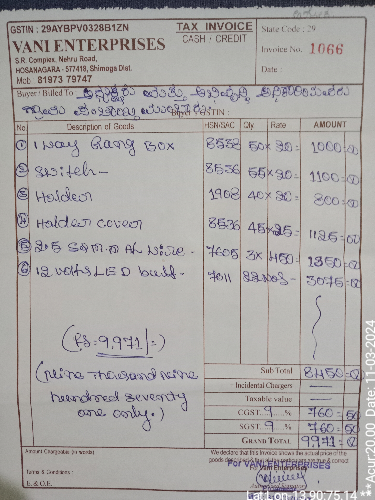 GSTIN : 29AYBPV0328B1ZN
TAX INVOICE
State Code : 29
VANI ENTERPRISES
CASH - CREDIT
S.R. Complex, Nehru Road,
HOSANAGARA - 577418, Shimoga Dist.
Mob 81973 79747
Invoice No. 1066
Date
Buyer / Billed To
Buyer GSTIN :
No Description of Goods HSN/SAC Qty Rate AMOUNT
1 1 way Gang Box 8538 50 x 20 = 1000=00
2 Switch - 8536 55 x 20 = 1100=00
3 Holder 40 x 20 = 800=00
4 Holder cover 8536 45 x 25 = 1125=00
5 2.5 SQ m.m AL wire - 7605 3 x 450 = 1350=00
6 12 volts LED bulb - 3075=00
(Rs: 9,971/=)
(nine thousand nine
hundred seventy
one only.)
Sub Total 8450=00
Incidental Chargers
Taxable value
CGST 9 % 760=50
SGST 9 % 760=50
GRAND TOTAL 9971=00
Amount Chargeable (in words)
We declare that this Invoice shown the actual price of the
goods described & that all particulars are true & correct
For VANI ENTERPRISES
Terms & Conditions :
E. & O.E.
Lat Lon:13.90,75.14 ** Acur:20.00 Date: 11-03-2024